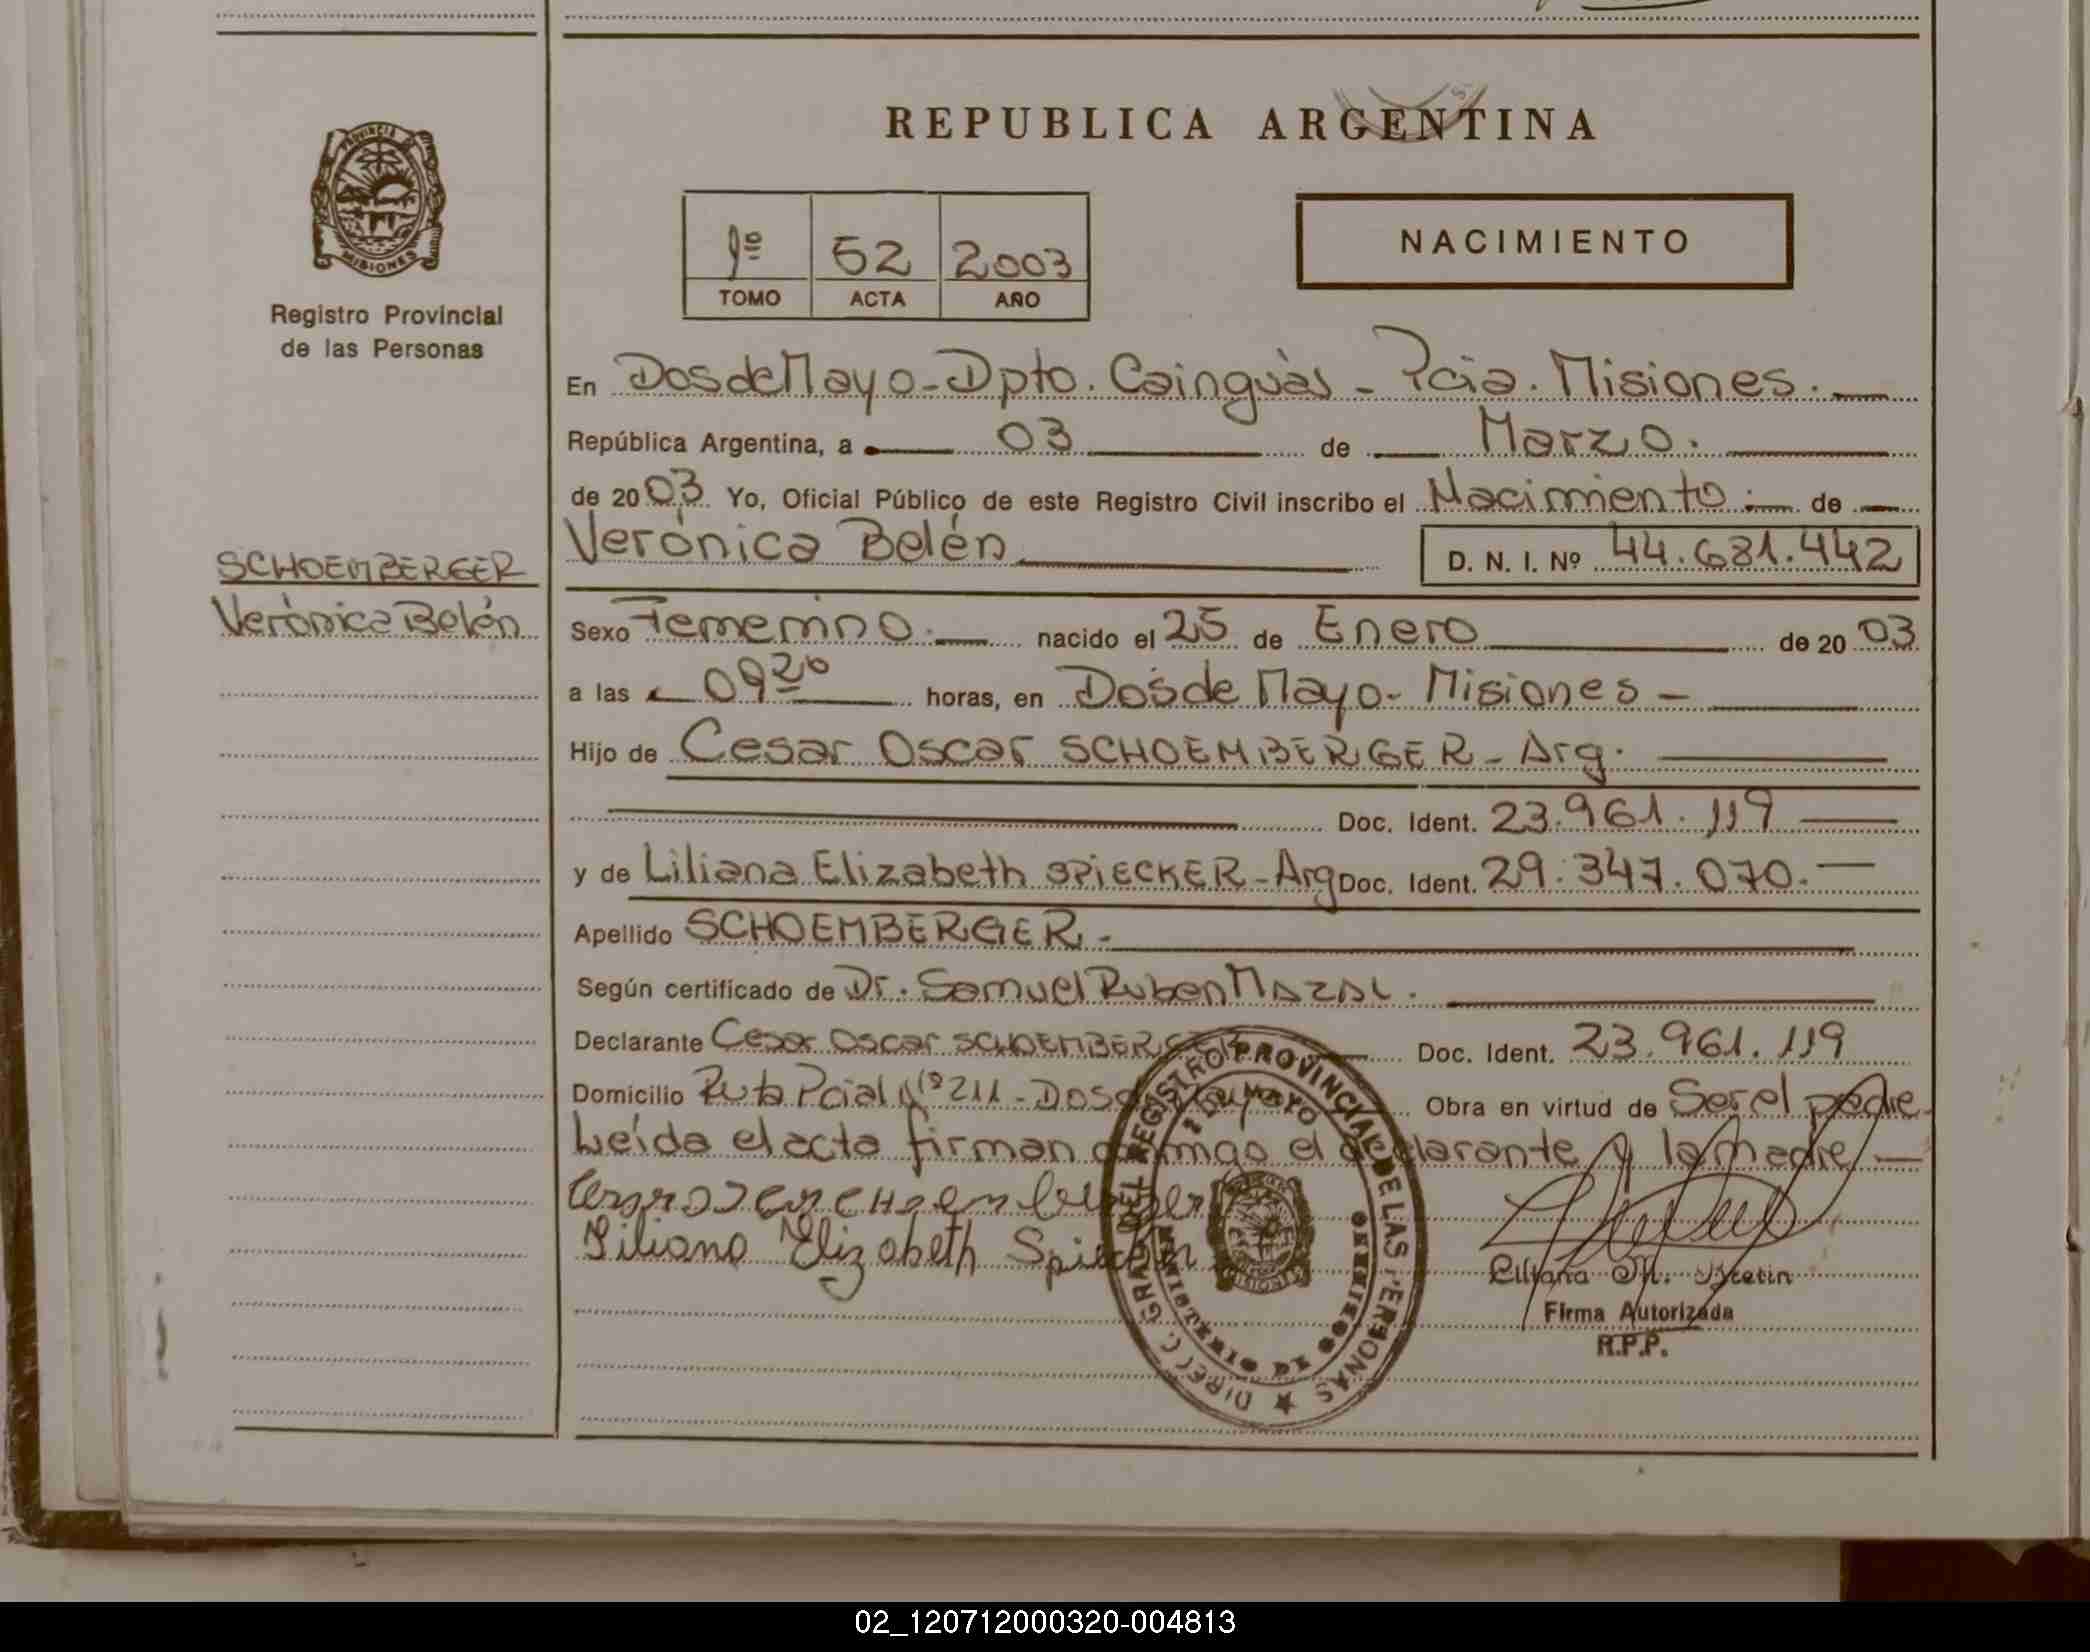 REPUBLICA ARGENTINA
PROVINCIA
MISIONES
Registro Provincial
de las Personas
1º 52 2003
TOMO ACTA AÑO
NACIMIENTO
En Dos de Mayo - Dpto. Cainguàs - Pcia. Misiones.
República Argentina, a 03 de Marzo.
de 2003 Yo, Oficial Público de este Registro Civil inscribo el Nacimiento de
Verónica Belén D. N. I. Nº 44.681.442
SCHOEMBERGER
Verónica Belén
Sexo Femenino. nacido el 25 de Enero de 2003
a las 09 20 horas, en Dos de Mayo - Misiones -
Hijo de Cesar Oscar SCHOEMBERGER - Arg.
Doc. Ident. 23.961.119
y de Liliana Elizabeth SPIECKER - Arg Doc. Ident. 29.347.070.
Apellido SCHOEMBERGER -
Según certificado de Dr. Samuel Ruben MAZAL.
Declarante Cesar Oscar SCHOEMBERGER Doc. Ident. 23.961.119
Domicilio Ruta Pcial Nº 211 - Dos de Mayo Obra en virtud de Ser el padre
Leída el acta firman conmigo el declarante y la madre
Liliana Elizabeth Spiecker
DIREC. GRAL. DEL REGISTRO PROVINCIAL DE LAS PERSONAS
2 DE MAYO
MINISTERIO DE GOBIERNO
MISIONES
Liliana M.
Firma Autorizada
R.P.P.
02_120712000320-004813